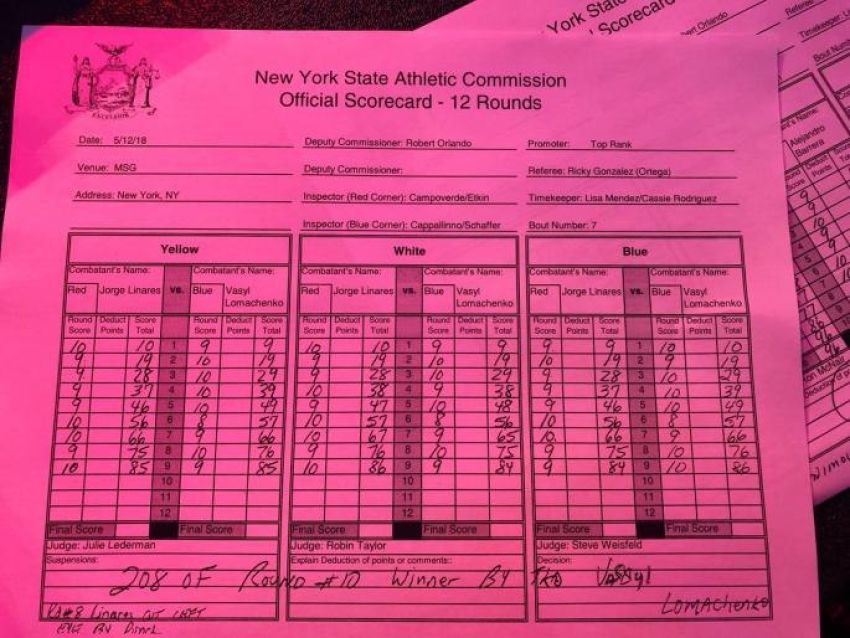 York State
l Scorecard
New York State Athletic Commission
Official Scorecard - 12 Rounds
EXCELSIOR
Date: 5/12/18 Deputy Commissioner: Robert Orlando Promoter: Top Rank
Venue: MSG Deputy Commissioner: Referee: Ricky Gonzalez (Ortega)
Address: New York, NY Inspector (Red Corner): Campoverde/Etkin Timekeeper: Lisa Mendez/Cassie Rodriguez
Inspector (Blue Corner): Cappallinno/Schaffer Bout Number: 7
Yellow White Blue
Combatant's Name: Combatant's Name: Combatant's Name: Combatant's Name: Combatant's Name: Combatant's Name:
Red Jorge Linares vs. Blue Vasyl Red Jorge Linares vs. Blue Vasyl Red Jorge Linares vs. Blue Vasyl
Lomachenko Lomachenko Lomachenko
Round Deduct Score Round Deduct Score Round Deduct Score Round Deduct Score Round Deduct Score Round Deduct Score
Score Points Total Score Points Total Score Points Total Score Points Total Score Points Total Score Points Total
10 10 1 9 9 10 10 1 9 9 9 9 1 10 10
9 19 2 10 19 9 19 2 10 19 10 19 2 9 19
9 28 3 10 29 9 28 3 10 29 9 28 3 10 29
9 37 4 10 39 10 38 4 9 38 9 37 4 10 39
9 46 5 10 49 9 47 5 10 48 9 46 5 10 49
10 56 6 8 57 10 57 6 8 56 10 56 6 8 57
10 66 7 9 66 10 67 7 9 65 10 66 7 9 66
9 75 8 10 76 9 76 8 10 75 9 75 8 10 76
10 85 9 9 85 10 86 9 9 84 9 84 9 10 86
10 10 10
11 11 11
12 12 12
Final Score Final Score Final Score Final Score Final Score Final Score
Judge: Julie Lederman Judge: Robin Taylor Judge: Steve Weisfeld
Suspensions: Explain Deduction of points or comments:: Decision:
208 OF Round #10 Winner BY TKO Vassyl
LOMACHENKO
Linares CUT LEFT
EYE BY
Alejandro
Barrera